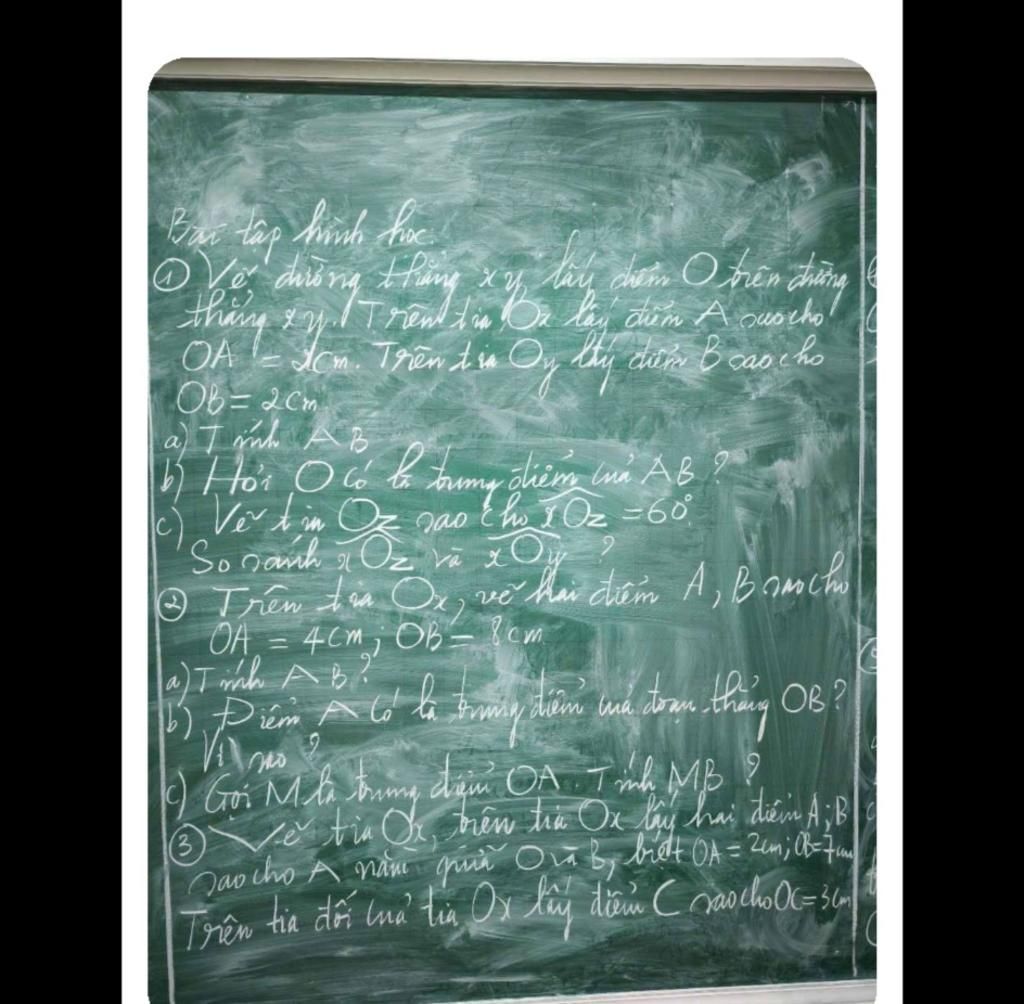 Bài tập hình học.
① Vẽ đường thẳng xy, lấy điểm O trên đường
thẳng xy. Trên tia Ox lấy điểm A sao cho
OA = 2cm. Trên tia Oy lấy điểm B sao cho
OB = 2cm
a) Tính AB
b) Hỏi O có là trung điểm của AB ?
c) Vẽ tia Oz sao cho xOz = 60°.
So sánh xOz và xOy ?
② Trên tia Ox, vẽ hai điểm A, B sao cho
OA = 4cm; OB = 8cm
a) Tính AB ?
b) Điểm A có là trung điểm của đoạn thẳng OB ?
Vì sao ?
c) Gọi M là trung điểm OA. Tính MB ?
③ Vẽ tia Ox, trên tia Ox lấy hai điểm A; B
sao cho A nằm giữa O và B, biết OA = 2cm; OB = 7cm
Trên tia đối của tia Ox lấy điểm C sao cho OC = 3cm